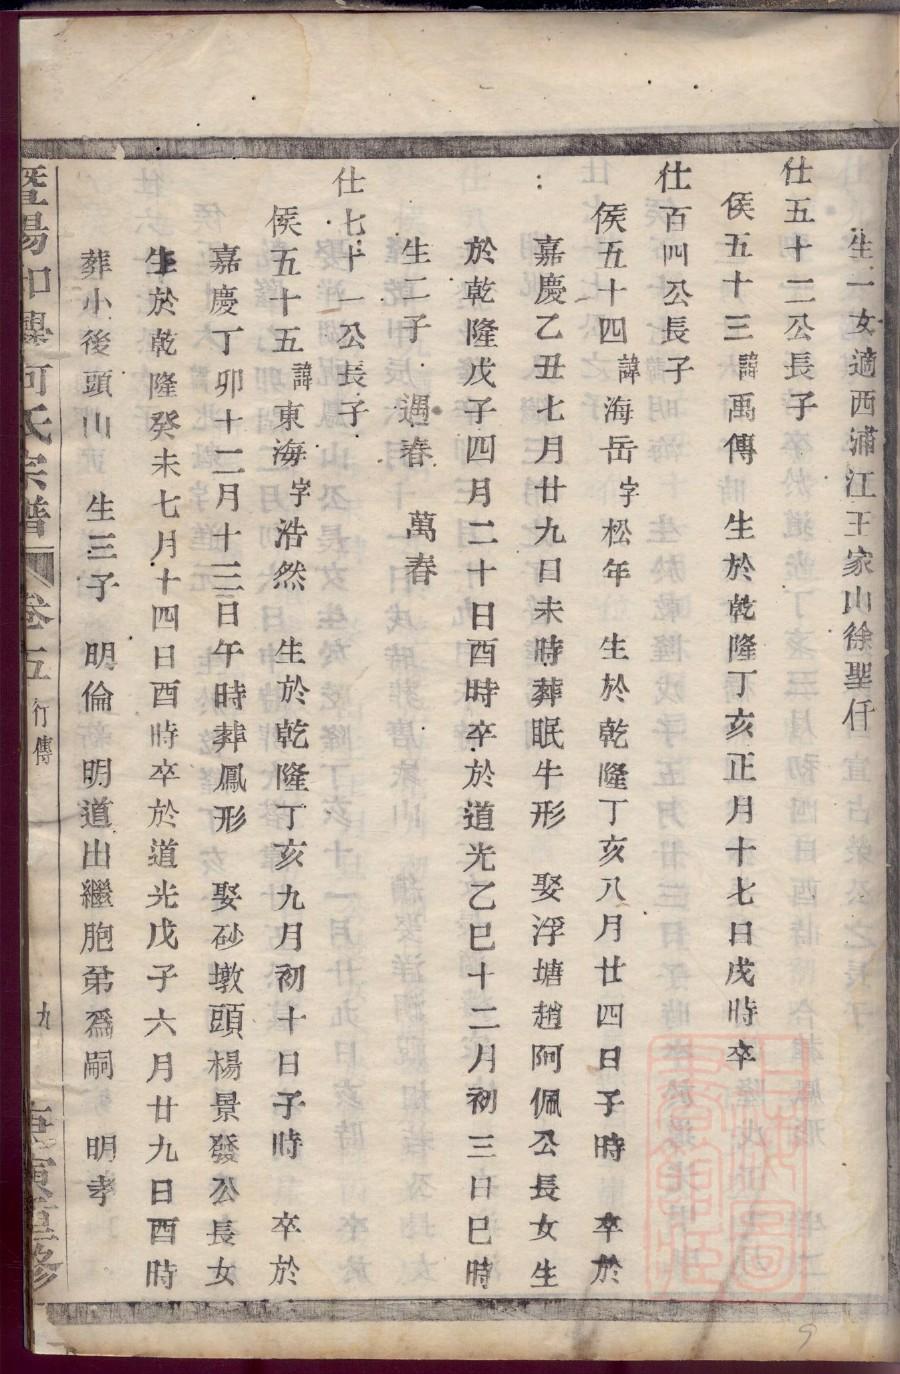 生一女適西浦江王家山徐聖仟
仕五十二公長子
侯五十三諱禹傳 生於乾隆丁亥正月十七日戌時卒
仕百四公長子
侯五十四諱海岳字松年 生於乾隆丁亥八月廿四日子時 卒於
嘉慶乙丑七月廿九日未時葬眠牛形 娶浮塘趙阿佩公長女生
於乾隆戊子四月二十日酉時卒於道光乙巳十二月初三日巳時
生二子 遇春 萬春
仕七十一公長子
侯五十五諱東海字浩然 生於乾隆丁亥九月初十日子時 卒於
嘉慶丁卯十二月十三日午時葬鳳形 娶砂墩頭楊景發公長女
生於乾隆癸未七月十四日酉時卒於道光戊子六月廿九日酉時
葬小後頭山 生三子 明倫 明道出繼胞弟爲嗣 明孝
暨陽 河氏宗譜 卷五 行傳 九 重修